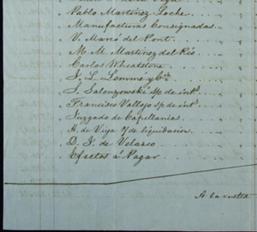 Pablo Martinez
Manufacturas Consignadas
V. Maria del Pont
M. M. Martinez del Rio
Carlos Wheatstone
J. L. Lemmo y Cia
J. Salonzowski sp. de int.
Francisco Vallejo sp. de int.
Juzgado de Capellanias
A. de Vega 7 de liquidacion
D. J. de Velasco
Efectos á Pagar
A la vuelta